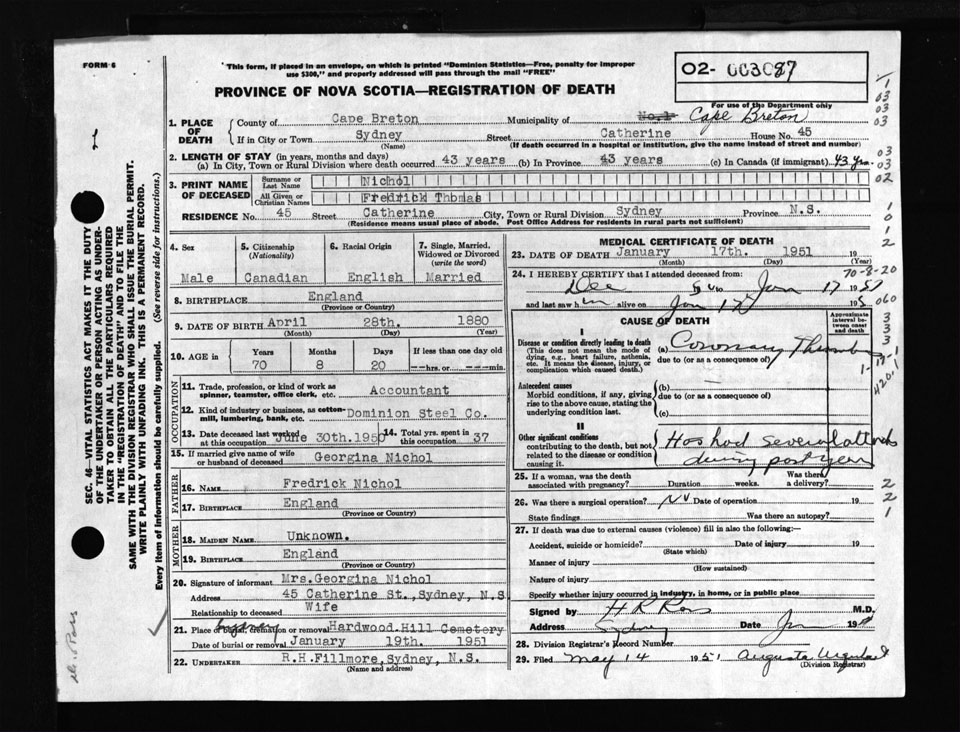 FORM 6
This form, if placed in an envelope, on which is printed "Dominion Statistics—Free, penalty for improper
use $300," and properly addressed will pass through the mail "FREE"
02- 003087
PROVINCE OF NOVA SCOTIA—REGISTRATION OF DEATH
For use of the Department only
1. PLACE OF DEATH { County of Cape Breton Municipality of No. 1 Cape Breton
If in City or Town Sydney Street Catherine House No. 45
(Name) (If death occurred in a hospital or institution, give the name instead of street and number)
2. LENGTH OF STAY (in years, months and days)
(a) In City, Town or Rural Division where death occurred 43 years (b) In Province 43 years (c) In Canada (if immigrant) 43 yrs.
3. PRINT NAME OF DECEASED { Surname or Last Name Nichol
All Given or Christian Names Fredrick Thomas
RESIDENCE No. 45 Street Catherine City, Town or Rural Division Sydney Province N.S.
(Residence means usual place of abode. Post Office Address for residents in rural parts not sufficient)
4. Sex 5. Citizenship (Nationality) 6. Racial Origin 7. Single, Married, Widowed or Divorced (write the word)
Male Canadian English Married
8. BIRTHPLACE England
(Province or Country)
9. DATE OF BIRTH April 28th. 1880
(Month) (Day) (Year)
10. AGE IN Years Months Days If less than one day old
70 8 20 hrs. or min.
OCCUPATION
11. Trade, profession, or kind of work as spinner, teamster, office clerk, etc. Accountant
12. Kind of industry or business, as cotton-mill, lumbering, bank, etc. Dominion Steel Co.
13. Date deceased last worked at this occupation June 30th.1950 14. Total yrs. spent in this occupation 37
15. If married give name of wife or husband of deceased Georgina Nichol
FATHER
16. NAME Fredrick Nichol
17. BIRTHPLACE England
(Province or Country)
MOTHER
18. MAIDEN NAME Unknown.
19. BIRTHPLACE England
(Province or Country)
20. Signature of informant Mrs.Georgina Nichol
Address 45 Catherine St.,Sydney, N.S
Relationship to deceased Wife
21. Place of burial, cremation or removal Hardwood.Hill Cemetery
Date of burial or removal January 19th. 1951
22. UNDERTAKER R.H.Fillmore,Sydney, N.S.
(Name and address)
MEDICAL CERTIFICATE OF DEATH
23. DATE OF DEATH January 17th. 1951 19
(Month) (Day)
24. I HEREBY CERTIFY that I attended deceased from: 70-8-20
Dec Jan 17 1951
and last saw him alive on Jan 17 195
CAUSE OF DEATH
Approximate interval between onset and death
I
Disease or condition directly leading to death
(This does not mean the mode of dying, e.g., heart failure, asthenia, etc. It means the disease, injury, or complication which caused death.)
(a) Coronary
due to (or as a consequence of)
Antecedent causes
Morbid conditions, if any, giving rise to the above cause, stating the underlying condition last.
(b)
due to (or as a consequence of)
(c)
II
Other significant conditions
contributing to the death, but not related to the disease or condition causing it.
Has had several attacks
during past year
25. If a woman, was the death associated with pregnancy? Duration weeks. Was there a delivery?
26. Was there a surgical operation? No Date of operation 19
State findings Was there an autopsy?
27. If death was due to external causes (violence) fill in also the following:—
Accident, suicide or homicide? Date of injury 19
(State which)
Manner of injury
(How sustained)
Nature of injury
Specify whether injury occurred in industry, in home, or in public place
Signed by H R Ross M.D.
Address Sydney Date Jan 19
28. Division Registrar's Record Number
29. Filed May 14 1951 Augusta
(Division Registrar)
SEC. 46—VITAL STATISTICS ACT MAKES IT THE DUTY
OF THE UNDERTAKER OR PERSON ACTING AS UNDER-
TAKER TO OBTAIN ALL THE PARTICULARS REQUIRED
IN THE "REGISTRATION OF DEATH" AND TO FILE THE
SAME WITH THE DIVISION REGISTRAR WHO SHALL ISSUE THE BURIAL PERMIT.
WRITE PLAINLY WITH UNFADING INK. THIS IS A PERMANENT RECORD.
Every item of information should be carefully supplied. (See reverse side for instructions.)
1
03
03
03
03
03
02
1
0
1
2
060
3
3
3
420.1
2
2
1